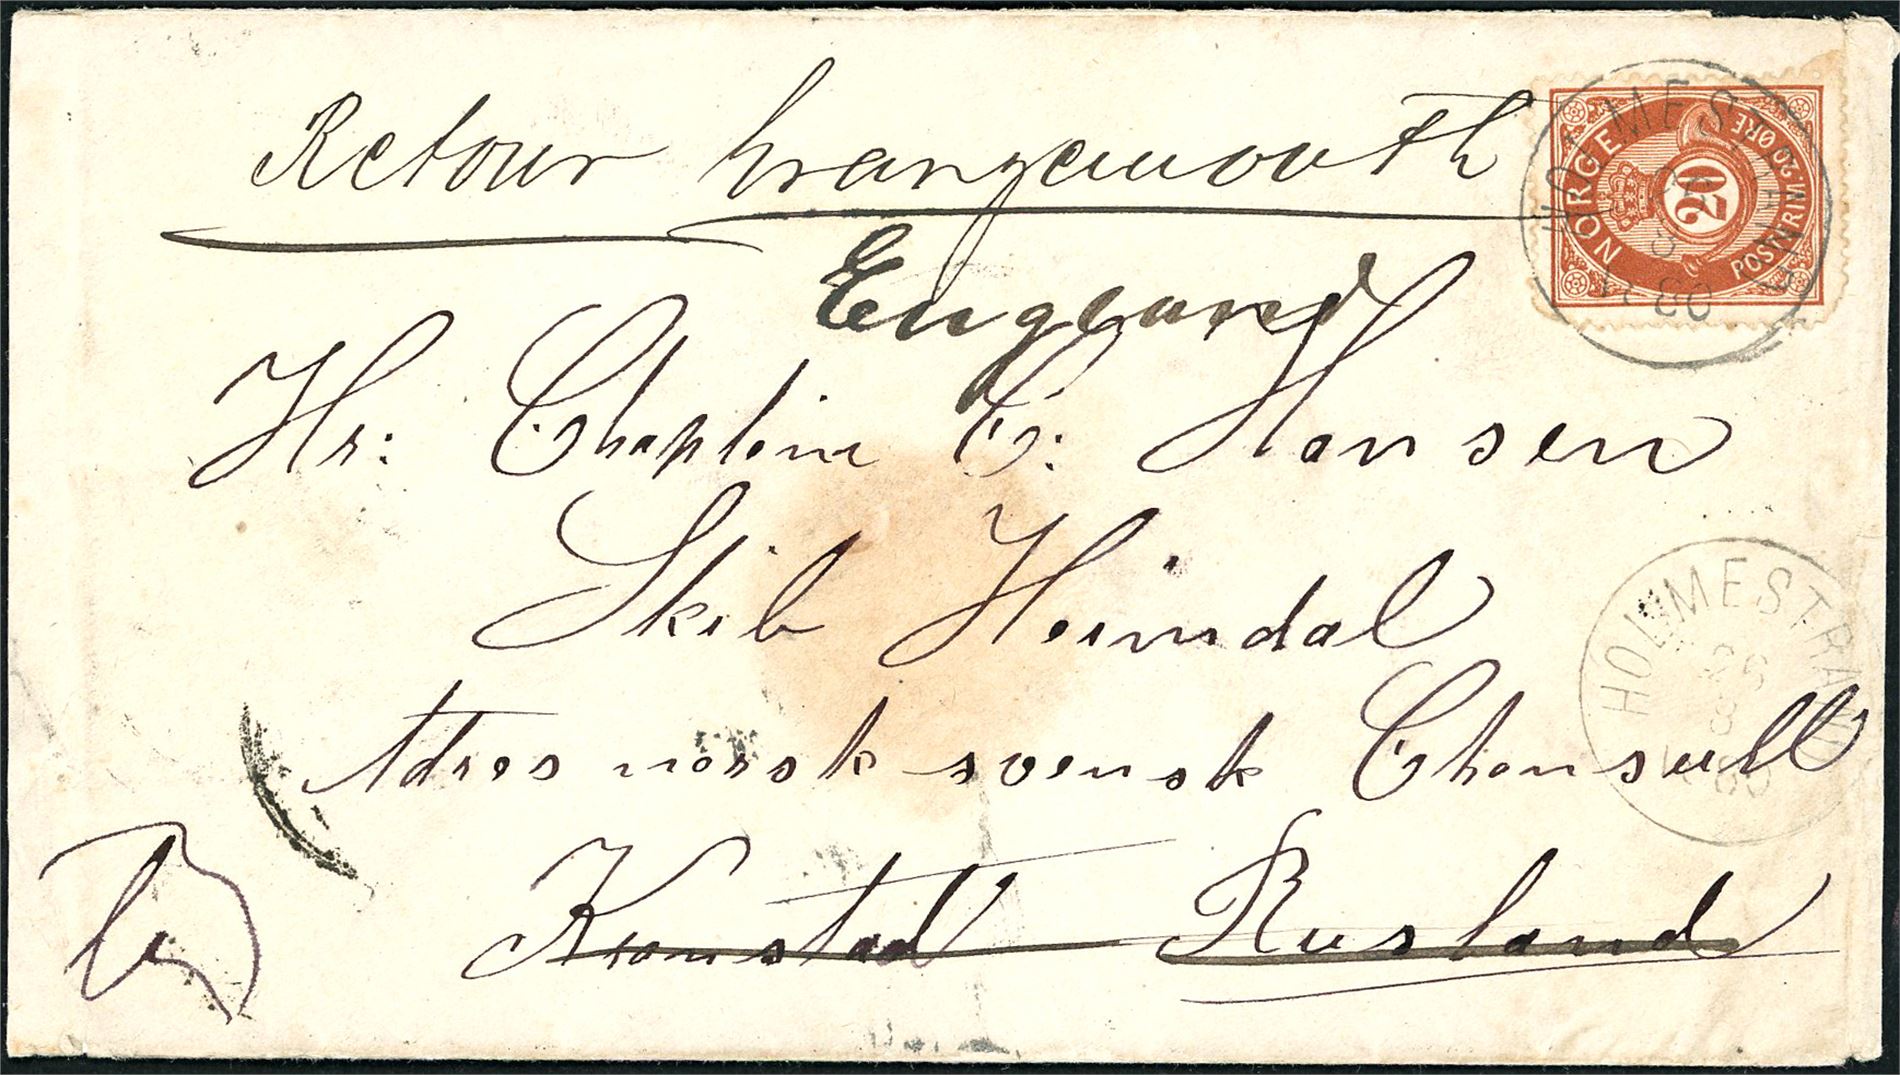 Retour Grangemouth
England
Hr: Chaptein C: Hansen
Skib Heimdal
Adres norsk svensk Chonsull
Kronstad Rusland
NORGE POSTFRIM 20 ØRE
20
HOLMESTRAND
HOLMESTRAND
26
8